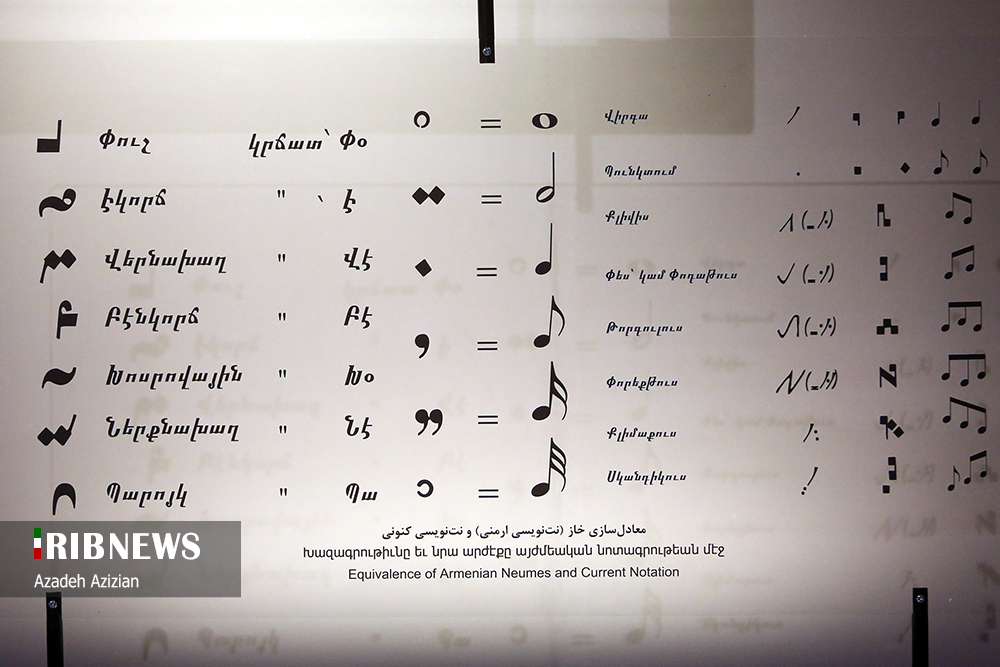 Փուշ կրճատ՝ Փօ =
Էկորճ " ՝ Է =
Վերնախաղ " Վէ =
Բէնկորճ " Բէ =
Խոսրովային " Խօ =
Ներքնախաղ " Նէ =
Պարոյկ " Պա =
Վիրգա
Պունկտում
Քլիվիս
Փես՝ կամ Փոդաթուս
Թորդուլուս
Փորեքթուս
Քլիմաքուս
Սկանդիկուս
معادل‌سازی خاز (نت‌نویسی ارمنی) و نت‌نویسی کنونی
Խազագրութիւնը եւ նրա արժէքը այժմեական նոտագրութեան մէջ
Equivalence of Armenian Neumes and Current Notation
RIBNEWS
Azadeh Azizian